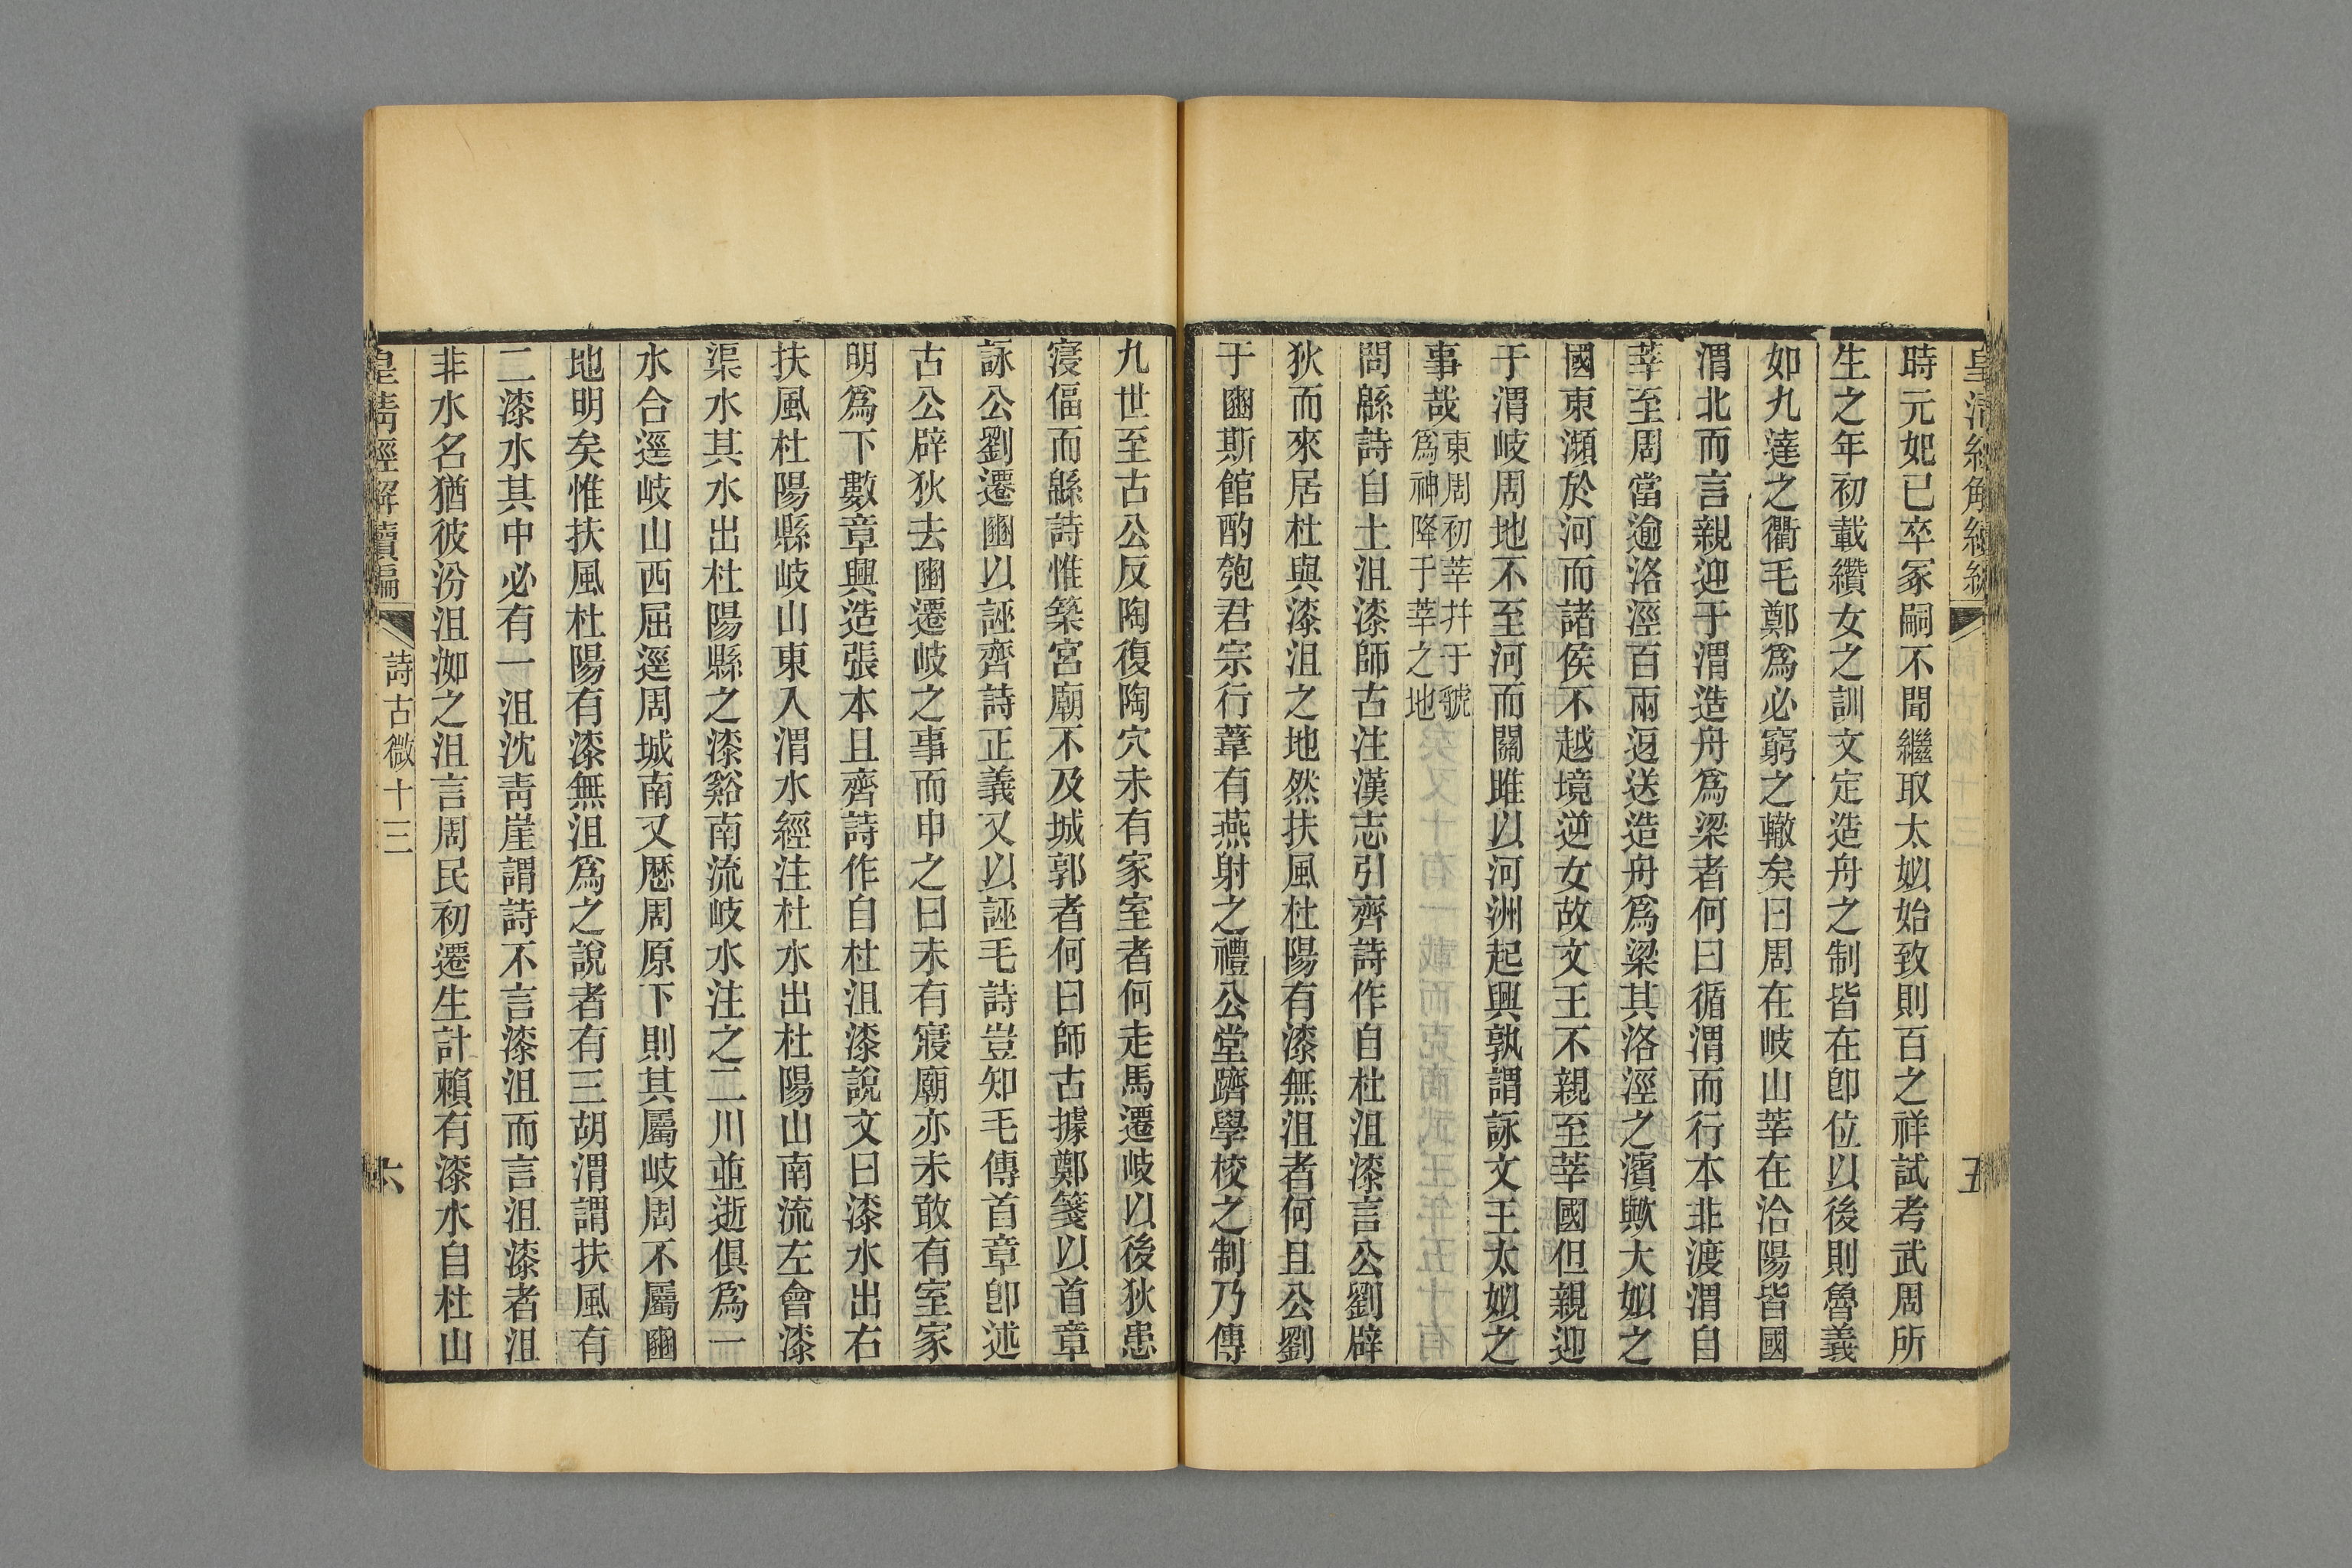 皇清經解續編
五
時元妃已卒冢嗣不聞繼取太姒始致則百之祥試考武周所
生之年初載纘女之訓文定造舟之制皆在卽位以後則魯義
如九達之衢毛鄭爲必窮之轍矣曰周在岐山莘在洽陽皆國
渭北而言親迎于渭造舟爲梁者何曰循渭而行本非渡渭自
莘至周當逾洛涇百兩迓送造舟爲梁其洛涇之濱歟大姒之
國東瀕於河而諸侯不越境逆女故文王不親至莘國但親迎
于渭岐周地不至河而關雎以河洲起興孰謂詠文王太姒之
事哉東周初莘幷于虢
爲神降于莘之地
問緜詩自土沮漆師古注漢志引齊詩作自杜沮漆言公劉辟
狄而來居杜與漆沮之地然扶風杜陽有漆無沮者何且公劉
于豳斯館酌匏君宗行葦有燕射之禮公堂躋學校之制乃傳
九世至古公反陶復陶穴未有家室者何走馬遷岐以後狄患
寖偪而緜詩惟築宮廟不及城郭者何曰師古據鄭箋以首章
詠公劉遷豳以誣齊詩正義又以誣毛詩豈知毛傳首章卽述
古公辟狄去豳遷岐之事而申之曰未有寢廟亦未敢有室家
明爲下數章興造張本且齊詩作自杜沮漆說文曰漆水出右
扶風杜陽縣岐山東入渭水經注杜水出杜陽山南流左會漆
渠水其水出杜陽縣之漆谿南流岐水注之二川並逝俱爲一
水合逕岐山西屈逕周城南又歷周原下則其屬岐周不屬豳
地明矣惟扶風杜陽有漆無沮爲之說者有三胡渭謂扶風有
二漆水其中必有一沮沈靑崖謂詩不言漆沮而言沮漆者沮
非水名猶彼汾沮洳之沮言周民初遷生計賴有漆水自杜山
皇清經解續編
詩古微十三
六